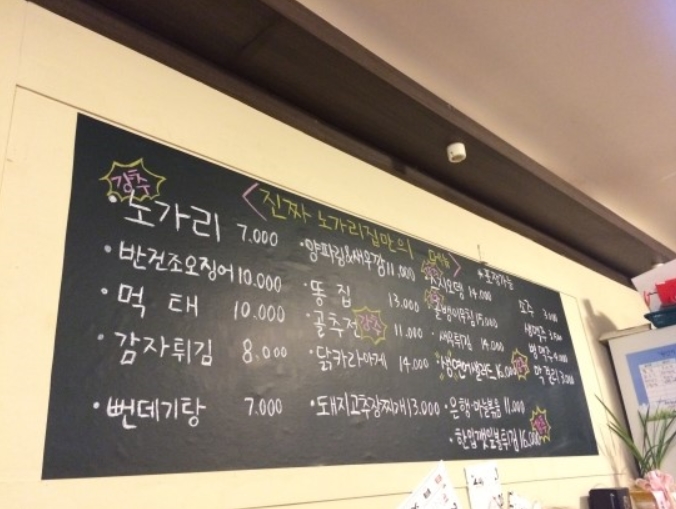 강추
<진짜 노가리집만의 메뉴>
노가리 7.000
반건조오징어 10.000
먹태 10.000
감자튀김 8.000
뻔데기탕 7.000
양파링&새우깡 11.000
똥집 13.000
골추전 강추 11.000
닭카라아게 14.000
돼지고추장찌개 13.000
스지오뎅 14.000
골뱅이무침 15.000
새우튀김 14.000
생연어샐러드 16.000
은행·마늘볶음 11.000
한입깻잎볼튀김 16.000
*포장가능
소주 3.000
생맥주
병맥주 4.000
막걸리 3.000